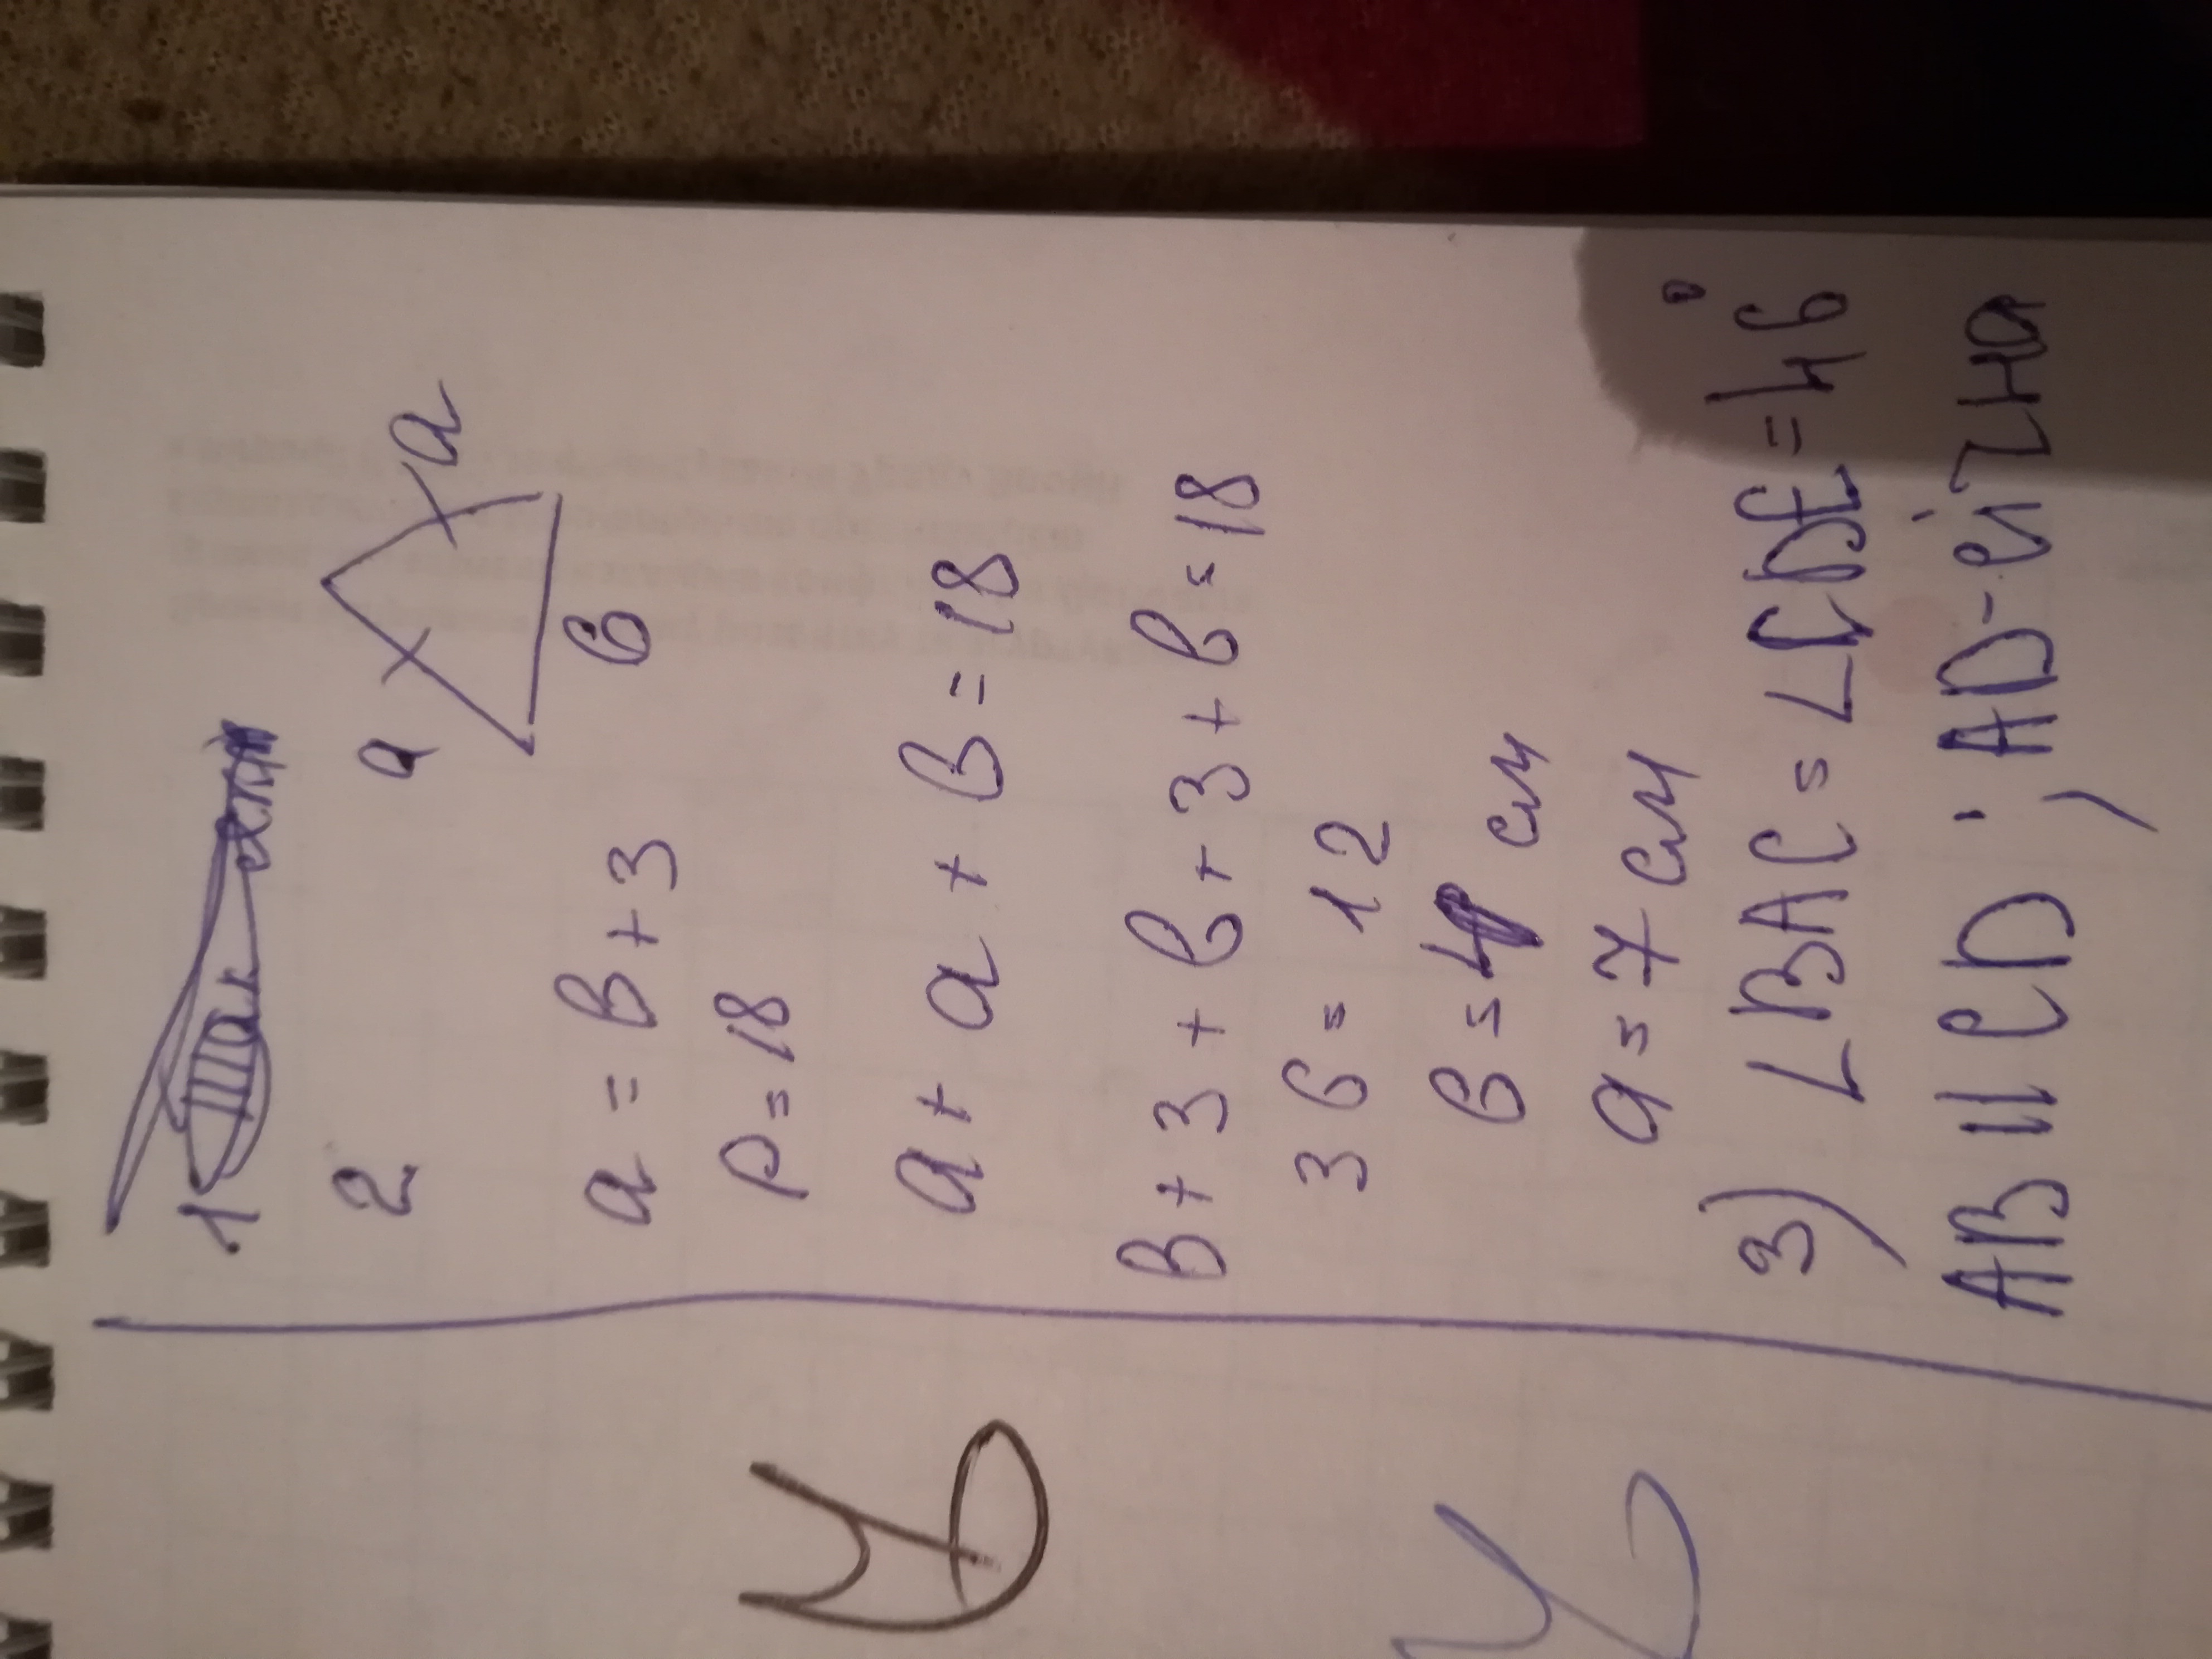 1
2
a a
в
a = в + 3
P = 18
a + a + в = 18
в + 3 + в + в + 3 + в = 18
3в = 12
в = 4 см
a = 7 см
3) ∠BAC = ∠CDE = 46°
AB || CD, AD - січна